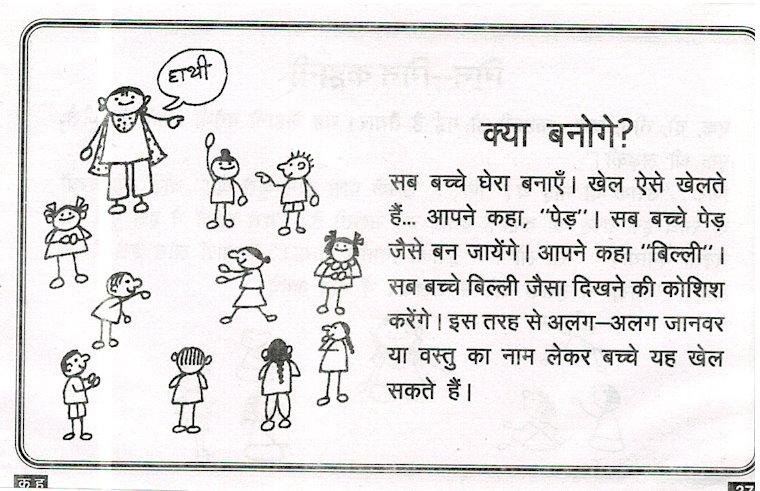 हाथी
क्या बनोगे?
सब बच्चे घेरा बनाएँ। खेल ऐसे खेलते
हैं... आपने कहा, “पेड़”। सब बच्चे पेड़
जैसे बन जायेंगे। आपने कहा “बिल्ली”।
सब बच्चे बिल्ली जैसा दिखने की कोशिश
करेंगे। इस तरह से अलग–अलग जानवर
या वस्तु का नाम लेकर बच्चे यह खेल
सकते हैं।
क ह
27